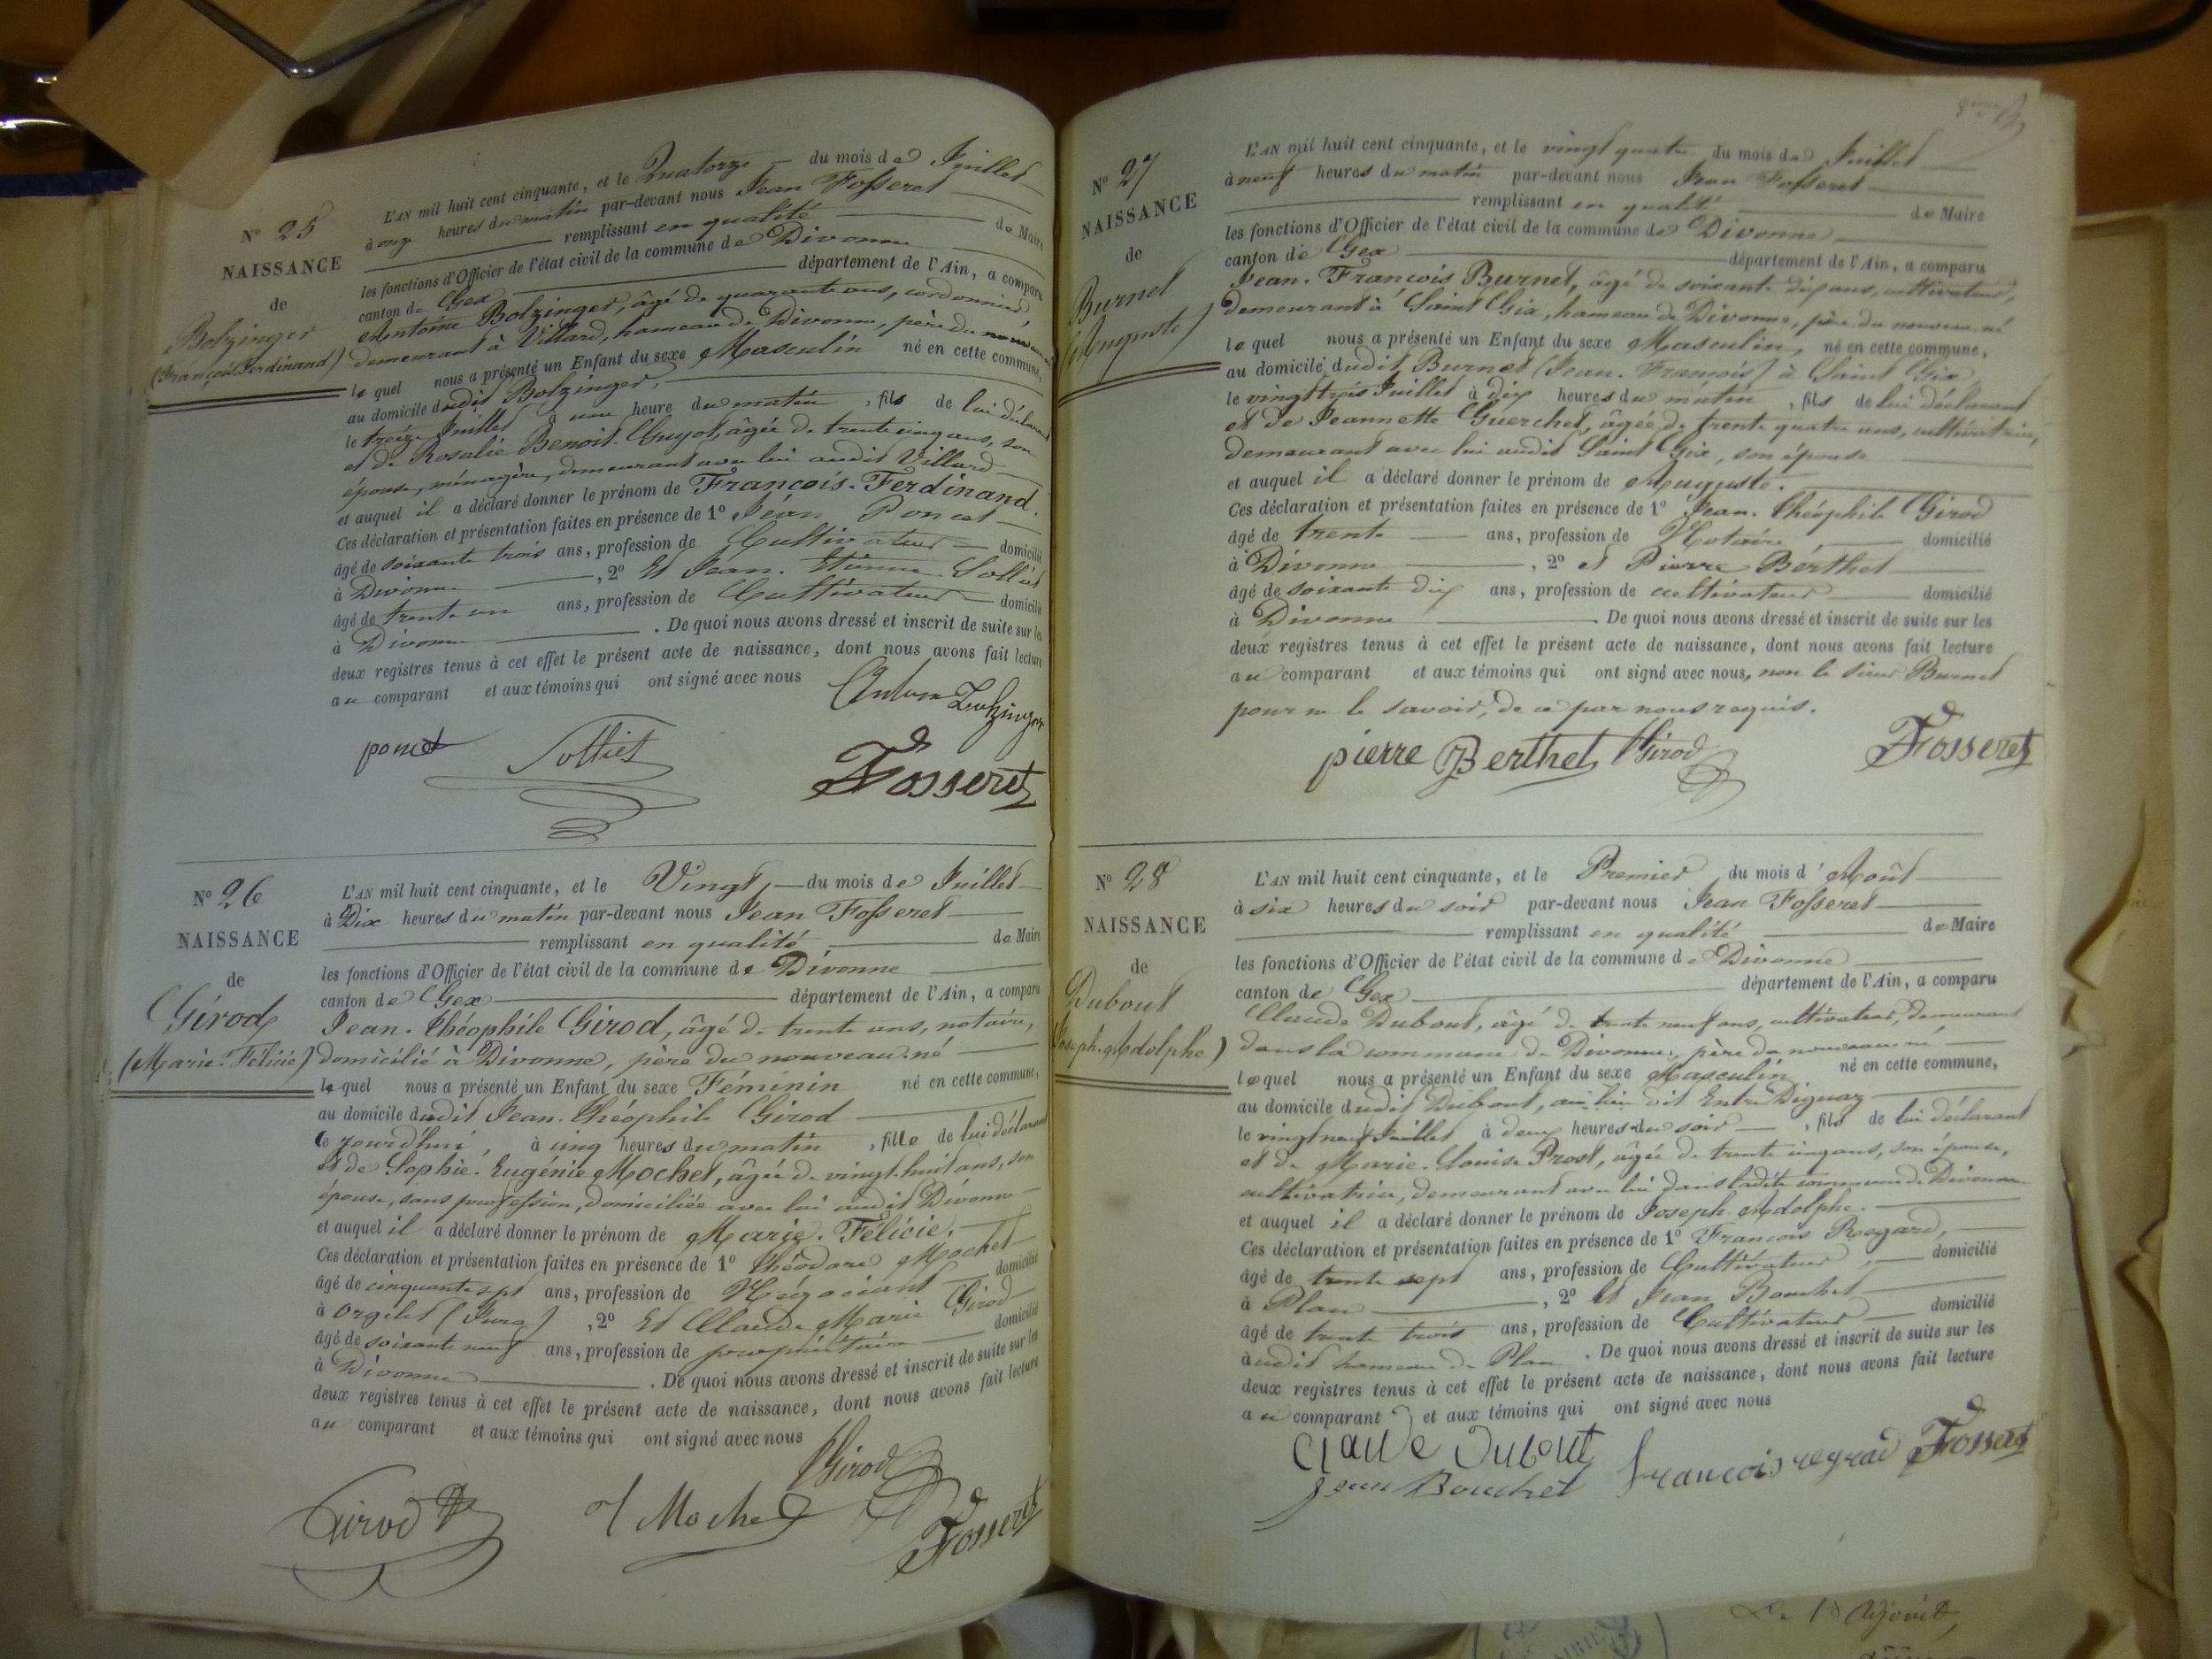 N° 25
NAISSANCE
de
Bolzinger
(François Ferdinand)
L'AN mil huit cent cinquante, et le Quatorze du mois de Juillet
à onze heures du matin par-devant nous Jean Fosseret
remplissant en qualité de Maire
les fonctions d'Officier de l'état civil de la commune de Divonne
canton de Gex département de l'Ain, a comparu
Antoine Bolzinger, âgé de quarante ans, cordonnier,
demeurant à Villard, hameau de Divonne, père du nouveau né
lequel nous a présenté un Enfant du sexe Masculin né en cette commune,
au domicile dudit Bolzinger,
le treize Juillet à une heure du matin, fils de lui déclarant
et de Rosalie Benoit-Guyot, âgée de trente cinq ans, son
épouse, ménagère, demeurant avec lui audit Villard
et auquel il a déclaré donner le prénom de François-Ferdinand.
Ces déclaration et présentation faites en présence de 1° Jean Poncet
âgé de soixante trois ans, profession de Cultivateur domicilié
à Divonne, 2° Et Jean-Etienne Solliet
âgé de trente un ans, profession de Cultivateur domicilié
à Divonne. De quoi nous avons dressé et inscrit de suite sur les
deux registres tenus à cet effet le présent acte de naissance, dont nous avons fait lecture
au comparant et aux témoins qui ont signé avec nous
poncet Solliet
Fosseret
N° 26
NAISSANCE
de
Girod
(Marie-Félicie)
L'AN mil huit cent cinquante, et le Vingt, du mois de Juillet
à Dix heures du matin par-devant nous Jean Fosseret
remplissant en qualité de Maire
les fonctions d'Officier de l'état civil de la commune de Divonne
canton de Gex département de l'Ain, a comparu
Jean-Théophile Girod, âgé de trente ans, notaire,
domicilié à Divonne, père du nouveau né
lequel nous a présenté un Enfant du sexe Féminin né en cette commune,
au domicile dudit Jean-Théophile Girod
ce jourd'hui à cinq heures du matin, fille de lui déclarant
et de Sophie-Eugénie Mochet, âgée de vingt-huit ans, son
épouse, sans profession, domiciliée avec lui audit Divonne
et auquel il a déclaré donner le prénom de Marie-Félicie.
Ces déclaration et présentation faites en présence de 1° Théodore Mochet
âgé de cinquante sept ans, profession de Négociant domicilié
à Orgelet (Jura), 2° Et Claude Marie Girod
âgé de soixante neuf ans, profession de propriétaire domicilié
à Divonne. De quoi nous avons dressé et inscrit de suite sur les
deux registres tenus à cet effet le présent acte de naissance, dont nous avons fait lecture
au comparant et aux témoins qui ont signé avec nous
Girod
Girod Mochet
Fosseret
N° 27
NAISSANCE
de
Burnet
(Auguste)
L'AN mil huit cent cinquante, et le vingt quatre du mois de Juillet
à neuf heures du matin par-devant nous Jean Fosseret
remplissant en qualité de Maire
les fonctions d'Officier de l'état civil de la commune de Divonne
canton de Gex département de l'Ain, a comparu
Jean-François Burnet, âgé de soixante dix ans, cultivateur,
demeurant à Saint Gix, hameau de Divonne, père du nouveau né
lequel nous a présenté un Enfant du sexe Masculin, né en cette commune,
au domicile dudit Burnet (Jean-François) à Saint Gix
le vingt trois Juillet à dix heures du matin, fils de lui déclarant
et de Jeannette Guerchet, âgée de trente quatre ans, cultivatrice,
demeurant avec lui audit Saint Gix, son épouse
et auquel il a déclaré donner le prénom de Auguste.
Ces déclaration et présentation faites en présence de 1° Jean-Théophile Girod
âgé de trente ans, profession de Notaire, domicilié
à Divonne, 2° et Pierre Berthet
âgé de soixante dix ans, profession de cultivateur domicilié
à Divonne. De quoi nous avons dressé et inscrit de suite sur les
deux registres tenus à cet effet le présent acte de naissance, dont nous avons fait lecture
au comparant et aux témoins qui ont signé avec nous, non le sieur Burnet
pour ne le savoir, de ce par nous requis.
pierre Berthet Girod Fosseret
N° 28
NAISSANCE
de
Dubout
(Joseph-Adolphe)
L'AN mil huit cent cinquante, et le Premier du mois d'Août
à six heures du soir par-devant nous Jean Fosseret
remplissant en qualité de Maire
les fonctions d'Officier de l'état civil de la commune de Divonne
canton de Gex département de l'Ain, a comparu
Claude Dubout, âgé de trente neuf ans, cultivateur, demeurant
dans la commune de Divonne, père du nouveau né
lequel nous a présenté un Enfant du sexe Masculin né en cette commune,
au domicile dudit Dubout, au lieu dit Entre
le vingt neuf Juillet à deux heures du soir, fils de lui déclarant
et de Marie-Louise Prost, âgée de trente cinq ans, son épouse,
cultivatrice, demeurant avec lui dans ladite commune de Divonne
et auquel il a déclaré donner le prénom de Joseph-Adolphe.
Ces déclaration et présentation faites en présence de 1° François Regard,
âgé de trente sept ans, profession de Cultivateur, domicilié
à Plan, 2° Et Jean Bouchet
âgé de trente trois ans, profession de Cultivateur domicilié
audit hameau de Plan. De quoi nous avons dressé et inscrit de suite sur les
deux registres tenus à cet effet le présent acte de naissance, dont nous avons fait lecture
au comparant et aux témoins qui ont signé avec nous
Claude Dubout
Jean Bouchet françois regrad Fosseret